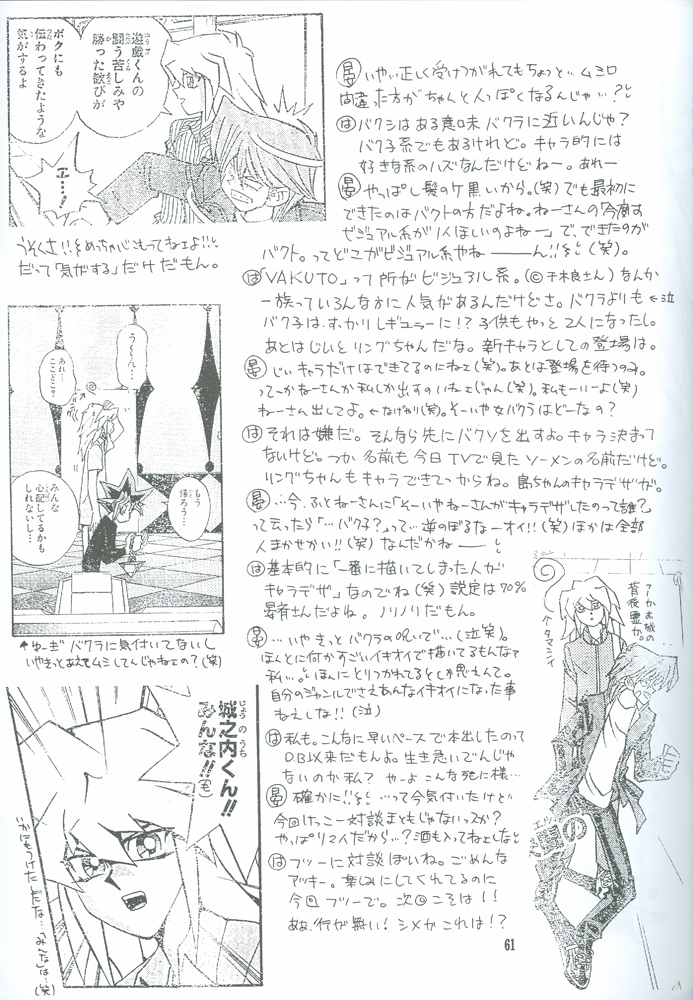 遊戯くんの
闘う苦しみや
勝った歓びが
ボクにも
伝わってきたような
気がするよ
うそくさ!!をめちゃじもってねェよ!!
だって「気がする」だけだもん。
うーん…
あれ…
ここどこ?
もう
帰ろう…
みんな
心配してるかも
しれないし…
↑ゆーぎ バクラに気付いてないし
いやきっとあえてムシしてんじゃねェの?(笑)
城之内くん!!
じょうのうち
みんな!!(も)
(笑)
晏 いや…正しく受けつがれてもちょっと… ムシロ
間違った方がちゃんと人っぽくなるんじゃ…?
は バクシはある意味バクラに近いんじゃ?
バク子系でもあるけれど。キャラ的には
好きな系のハズなんだけどねー。あれー
晏 やっぱし髪のケ黒いから。(笑)でも最初に
できたのはバクトの方だよね。ねーさんの「今度す
ビジュアル系が1人ほしいのよねー」で、できたのが
バクト。ってどこがビジュアル系やね――ん!!(笑)。
は「VAKUTO」って所がビジュアル系。(©千木良さん)なんか
一族っているんなかに人気があるんだけどさ。バクラよりも ←泣
バク子は、すっかりレギュラーに!?子供もやっと2人になったし。
あとはじいとリングちゃんだな。新キャラとしての登場は。
晏 じいキャラだけはできてるのにねェ(笑)。あとは登場を待つのみ。
ってーかねーさんか私しか出すのいねェじゃん(笑)。私もいーよ(笑)
ねーさん出してよ。←なげやり(笑)。そーいや女バクラはどーなの?
は それは嫌だ。そんなら先にバクソを出すよ。キャラ決まって
ないけど。つか名前も今日TVで見たソーメンの名前だけど。
リングちゃんもキャラできてっからね。島ちゃんのキャラデザで。
晏 …今、ふとねーさんに「そーいやねーさんがキャラデザしたのって誰?」
って云ったら「…バク子?」って…逆のぼるなーオイ!!(笑)ほかは全部
人まかせかい!!(笑)なんだかね――
は 基本的に「一番に描いてしまった人が
キャラデザ」なのでね(笑)設定は70%
晏斉さんだよね。ノリノリだもん。
晏 …いやきっとバクラの呪いで…(泣笑)。
ほんとに何かすごいイキオイで描いてるもんなァ
私…。ほんにとりつかれてるとしか思えんて。
自分のジャンルでさえあんなイキオイになった事
ねえしな!!(泣)
は 私も。こんなに早いペースで本出したのって
D.B以来だもんよ。生き急いでんじゃ
ないのか私?やーよこんな死に様…
晏 確かに!! …って今気付いたけど
今回けっこー対談まともじゃないっスか?
やっぱり2人だから…?酒も入ってねェしな
は フツーに対談ぽいね。ごめんな
アッキー。楽しみにしてくれてるのに
今回フツーで。次こそは!!
ああ、行が無い!シメがこれは!?
背後霊か。
61